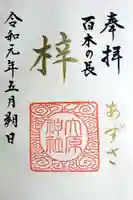 奉拝
百木の長
梓
あずさ
令和元年五月朔日